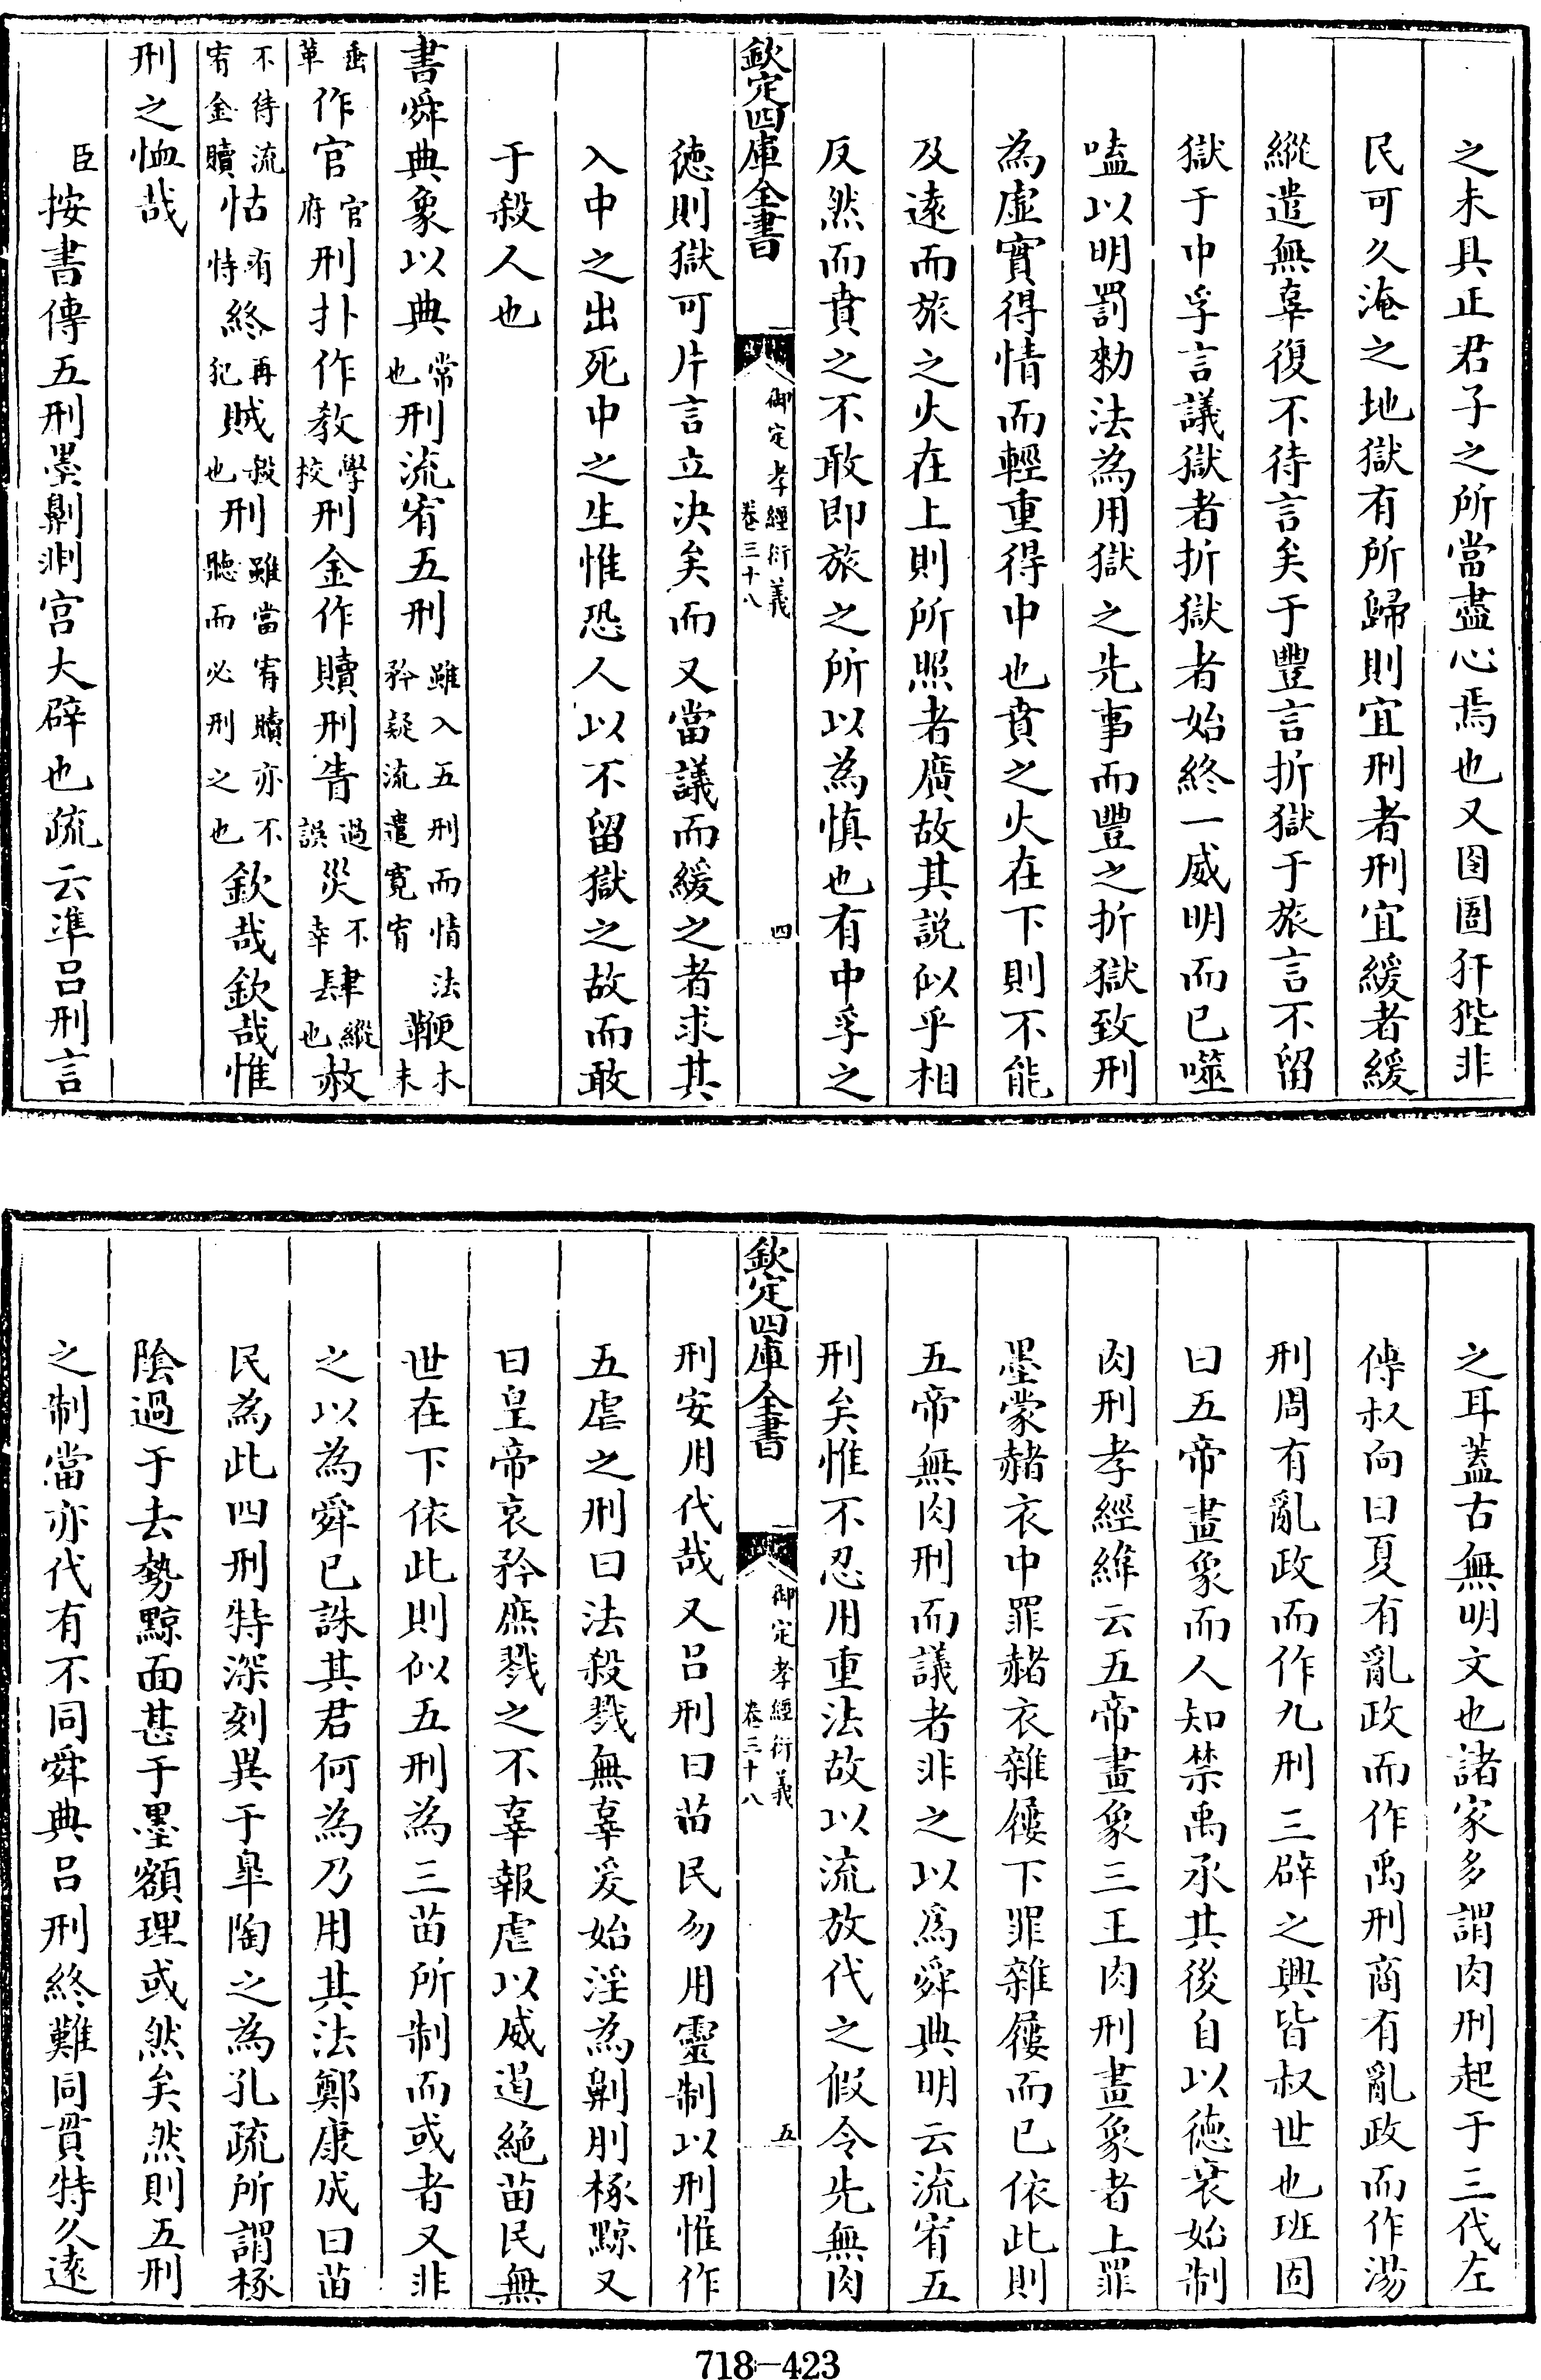 之未具正君子之所當盡心焉也又囹圄犴狴非
民可久淹之地獄有所歸則宜刑者刑宜緩者緩
縱遣無辜復不待言矣于豐言折獄于旅言不留
獄于中孚言議獄者折獄者始終一威明而已噬
嗑以明罰勅法為用獄之先事而豐之折獄致刑
為虛實得情而輕重得中也賁之火在下則不能
及遠而旅之火在上則所照者廣故其説似乎相
反然而賁之不敢即旅之所以為慎也有中孚之
欽定四庫全書 御定孝經衍義 卷三十八 四
徳則獄可片言立决矣而又當議而緩之者求其
入中之出死中之生惟恐人以不留獄之故而敢
于殺人也
書舜典象以典常也刑流宥五刑雖入五刑而情法矜疑流遣寛宥鞭木末
垂革作官官府刑扑作教學校刑金作贖刑眚過誤災不幸肆縱也赦
不待流宥金贖怙有恃終再犯賊殺也刑雖當宥贖亦不聽而必刑之也欽哉欽哉惟
刑之恤哉
臣按書傳五刑墨劓剕宫大辟也疏云準吕刑言
之耳蓋古無明文也諸家多謂肉刑起于三代左
傳叔向曰夏有亂政而作禹刑商有亂政而作湯
刑周有亂政而作九刑三辟之興皆叔世也班固
曰五帝畫象而人知禁禹承其後自以徳衰始制
肉刑孝經緯云五帝畫象三王肉刑畫象者上罪
墨蒙赭衣中罪赭衣雜屨下罪雜屨而已依此則
五帝無肉刑而議者非之以爲舜典明云流宥五
刑矣惟不忍用重法故以流放代之假令先無肉
欽定四庫全書 御定孝經衍義 卷三十八 五
刑安用代哉又吕刑曰苗民勿用靈制以刑惟作
五虐之刑曰法殺戮無辜爰始淫為劓刵椓黥又
曰皇帝哀矜庶戮之不辜報虐以威遏絶苗民無
世在下依此則似五刑為三苗所制而或者又非
之以為舜已誅其君何為乃用其法鄭康成曰苗
民為此四刑特深刻異于臯陶之為孔疏所謂椓
陰過于去勢黥面甚于墨額理或然矣然則五刑
之制當亦代有不同舜典吕刑終難同貫特久遠
718-423